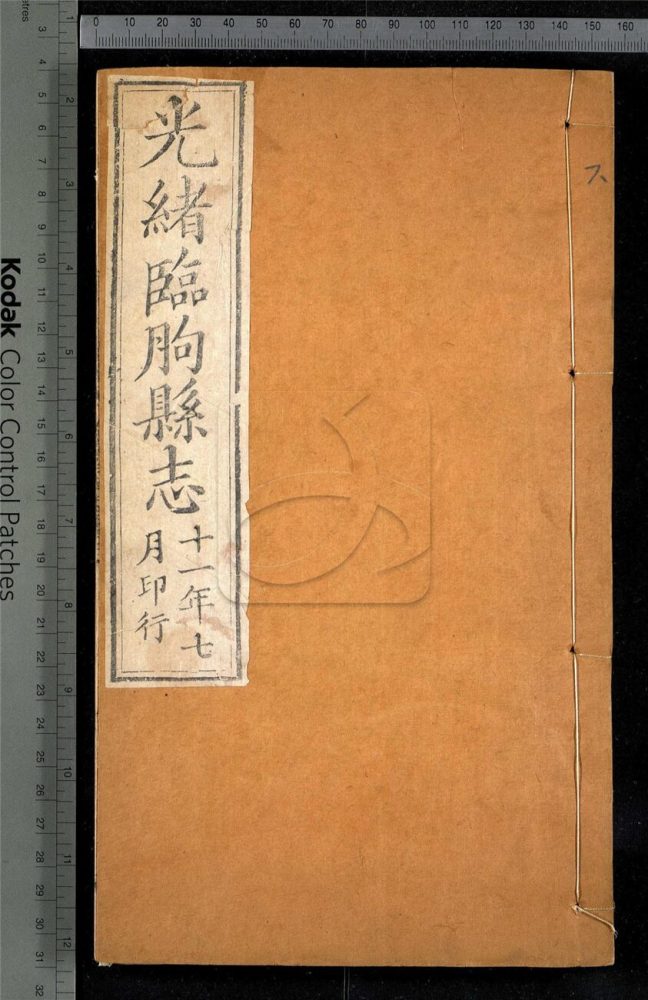 光緒臨朐縣志
十一年七
月印行
0 10 20 30 40 50 60 70 80 90 100 110 120 130 140 150 160
Kodak Color Control Patches
3 4 5 6 7 8 9 10 11 12 13 14 15 16 17 18 19 20 21 22 23 24 25 26 27 28 29 30 31 32
1 2 3 4 5 6 7 8 9 10 11 12